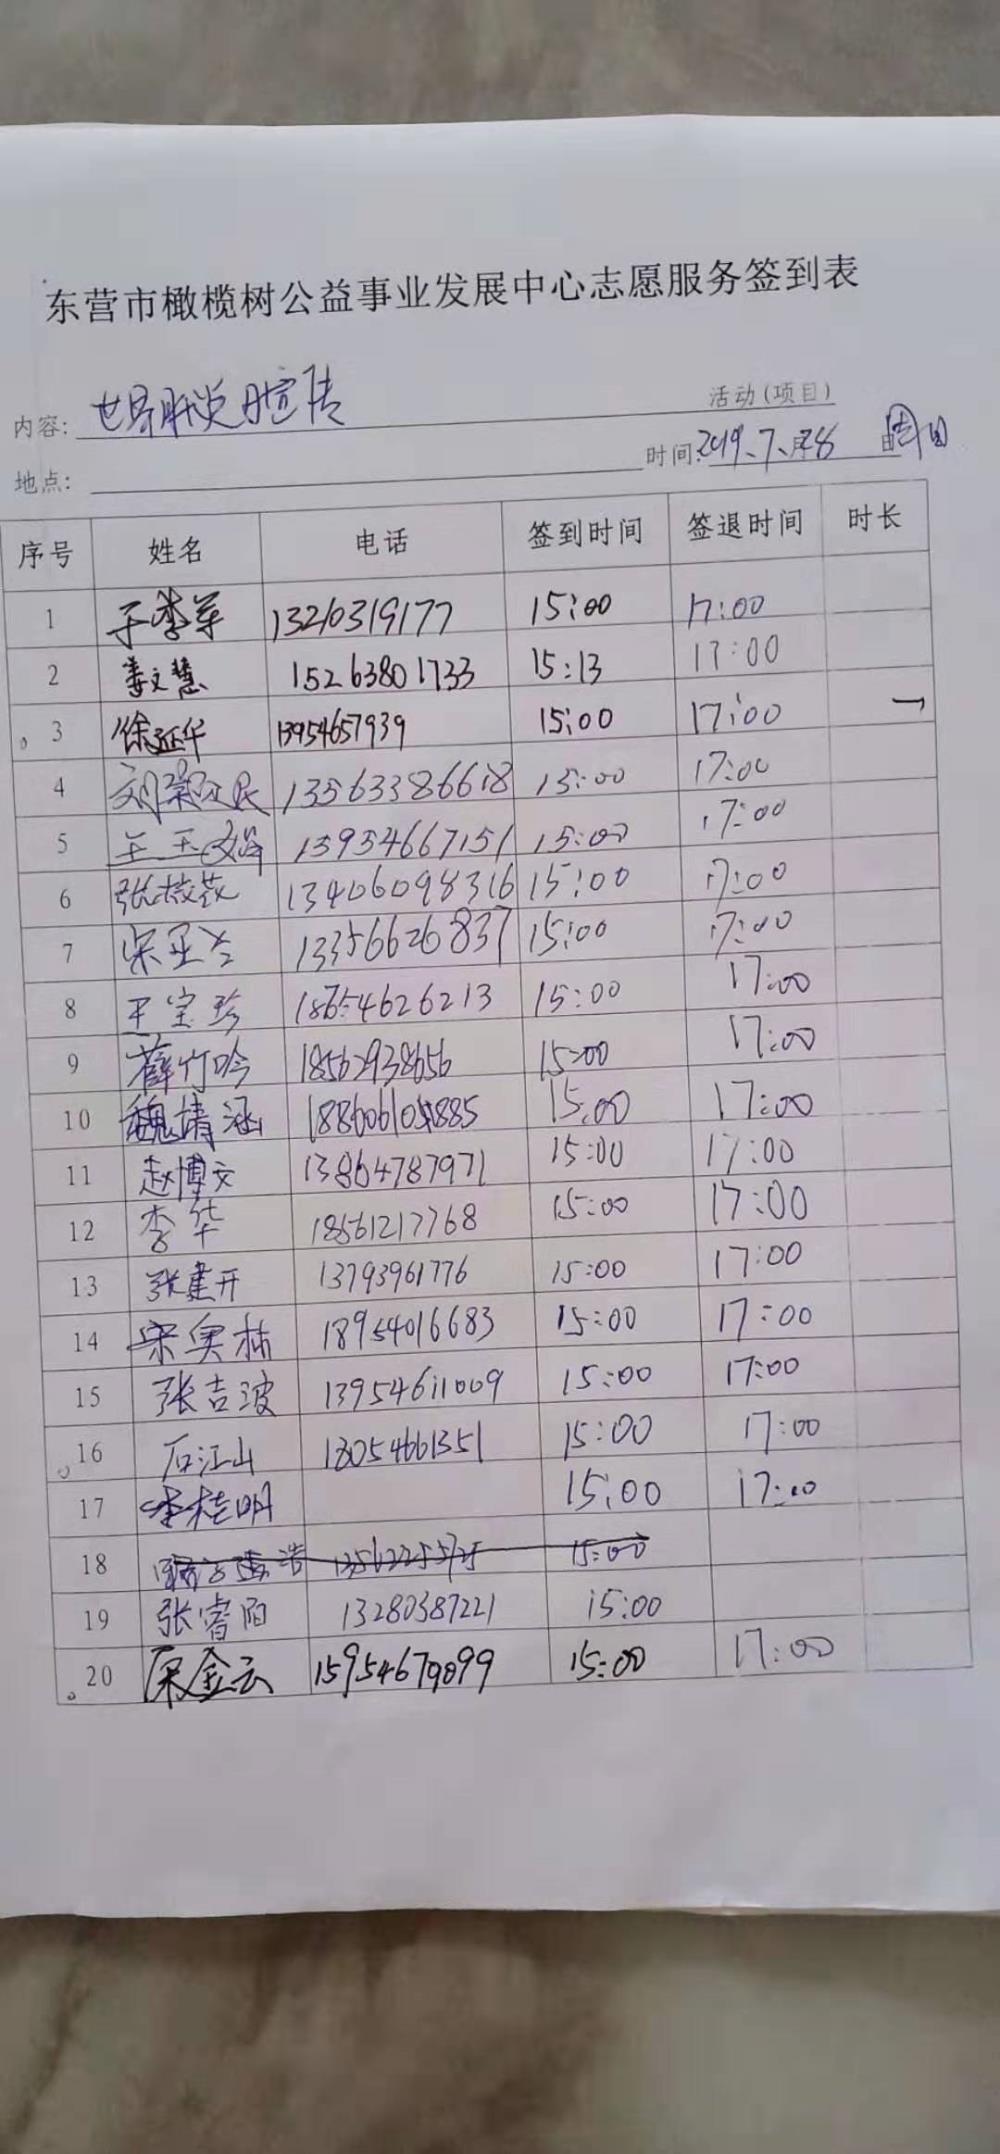 东营市橄榄树公益事业发展中心志愿服务签到表
内容: 世界肝炎日宣传 活动(项目)
地点: 时间: 2019.7.28 周日
序号 姓名 电话 签到时间 签退时间 时长
1 于李军 13210319177 15:00 17:00
2 姜文慧 15263801733 15:13 17:00
3 徐延华 13954657939 15:00 17:00
4 13563386618 15:00 17:00
5 王玉 13954667151 15:00 17:00
6 张 13406098316 15:00 17:00
7 宋亚兰 13356626837 15:00 17:00
8 王宝珍 18654626213 15:00 17:00
9 薛竹吟 18562938656 15:00 17:00
10 魏靖涵 15:00 17:00
11 赵博文 13864787971 15:00 17:00
12 李华 18561217768 15:00 17:00
13 张建开 13793961776 15:00 17:00
14 宋奥林 18954016683 15:00 17:00
15 张吉波 13954611009 15:00 17:00
16 石江山 18054661351 15:00 17:00
17 李桂明 15:00 17:00
18 15:00
19 张睿阳 13280387221 15:00
20 宋金云 15954679099 15:00 17:00